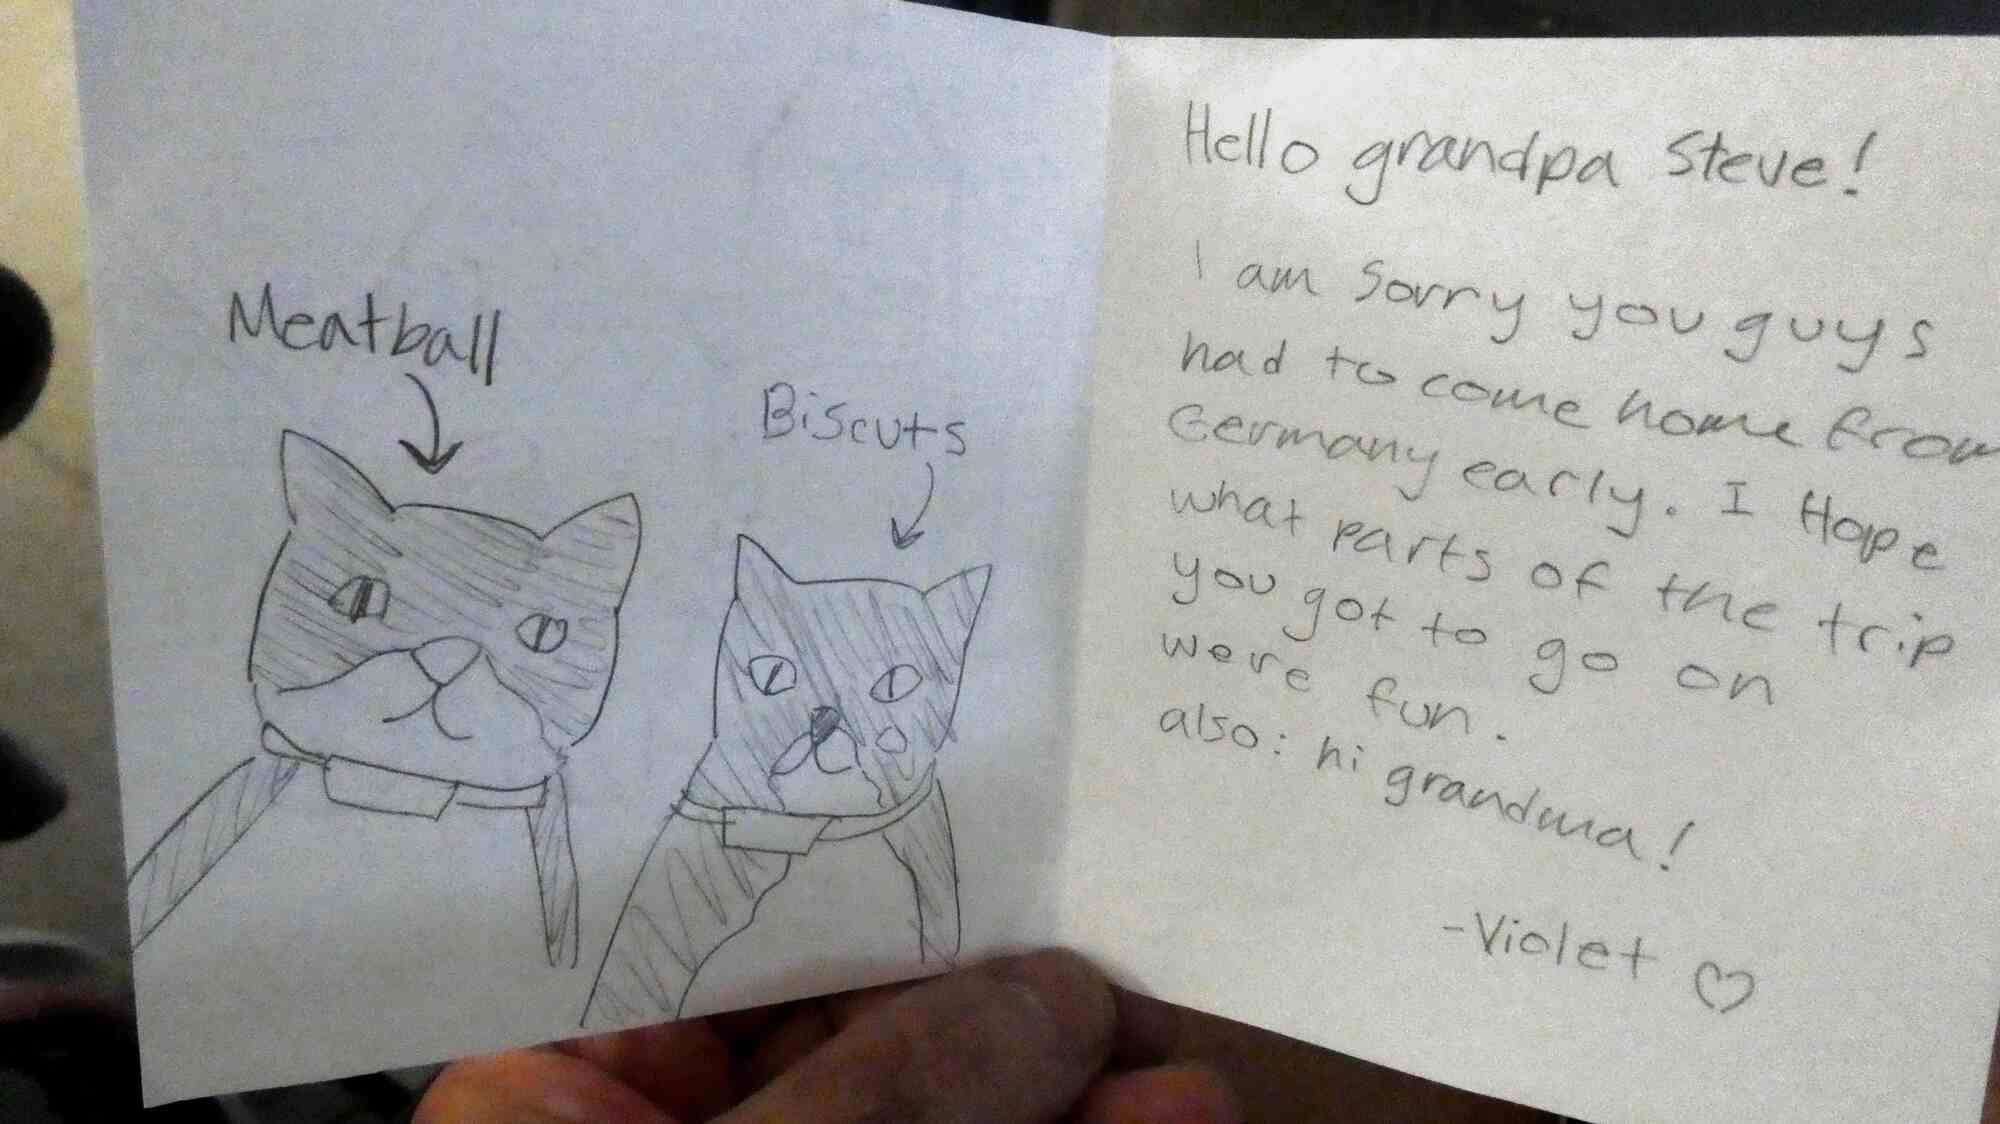 Meatball
Biscuts
Hello grandpa Steve!
I am sorry you guys
had to come home from
Germany early. I Hope
what parts of the trip
you got to go on
were fun.
also: hi grandma!
-Violet ♡